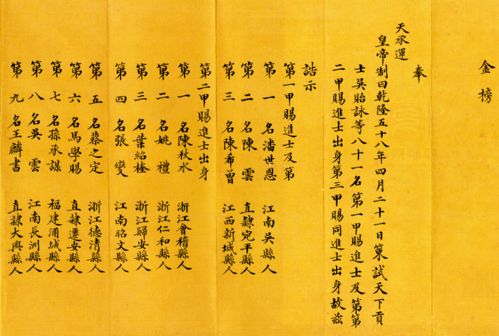 金榜
奉
天承運
皇帝制曰乾隆五十八年四月二十一日策試天下貢
士吳貽詠等八十一名第一甲賜進士及第第
二甲賜進士出身第三甲賜同進士出身故茲
誥示
第一甲賜進士及第
第一名潘世恩 江南吳縣人
第二名陳雲 直隸宛平縣人
第三名陳希曾 江西新城縣人
第二甲賜進士出身
第一名陳秋水 浙江會稽縣人
第二名姚禮 浙江仁和縣人
第三名葉紹楏 浙江歸安縣人
第四名張燮 江南昭文縣人
第五名蔡之定 浙江德清縣人
第六名馬學賜 直隸遷安縣人
第七名孫承謀 福建浦城縣人
第八名吳雲 江南長洲縣人
第九名王麟書 直隸大興縣人